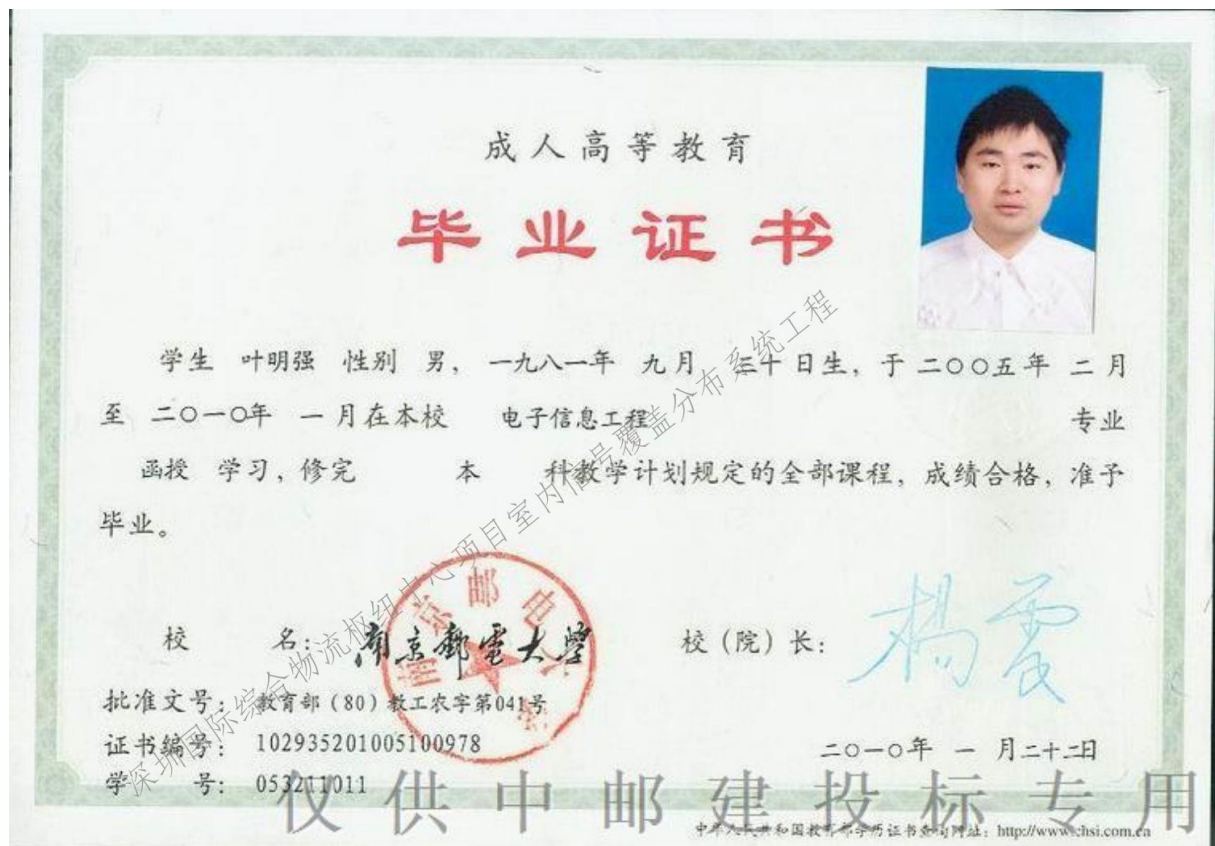 成人高等教育
毕业证书
学生 叶明强 性别 男，一九八一年 九月 三十日生，于二〇〇五年 二月
至 二〇一〇年 一月在本校 电子信息工程 专业
函授 学习，修完 本 科教学计划规定的全部课程，成绩合格，准予
毕业。
校 名：南京邮电大学 校（院）长：杨震
南京邮电大学
批准文号：教育部（80）教工农字第041号
证书编号：102935201005100978 二〇一〇年 一 月二十二日
学 号：053211011
仅供中邮建投标专用
中华人民共和国教育部学历证书查询网址：http://www.chsi.com.cn
深圳国际综合物流枢纽中心项目室内信号覆盖分布系统工程